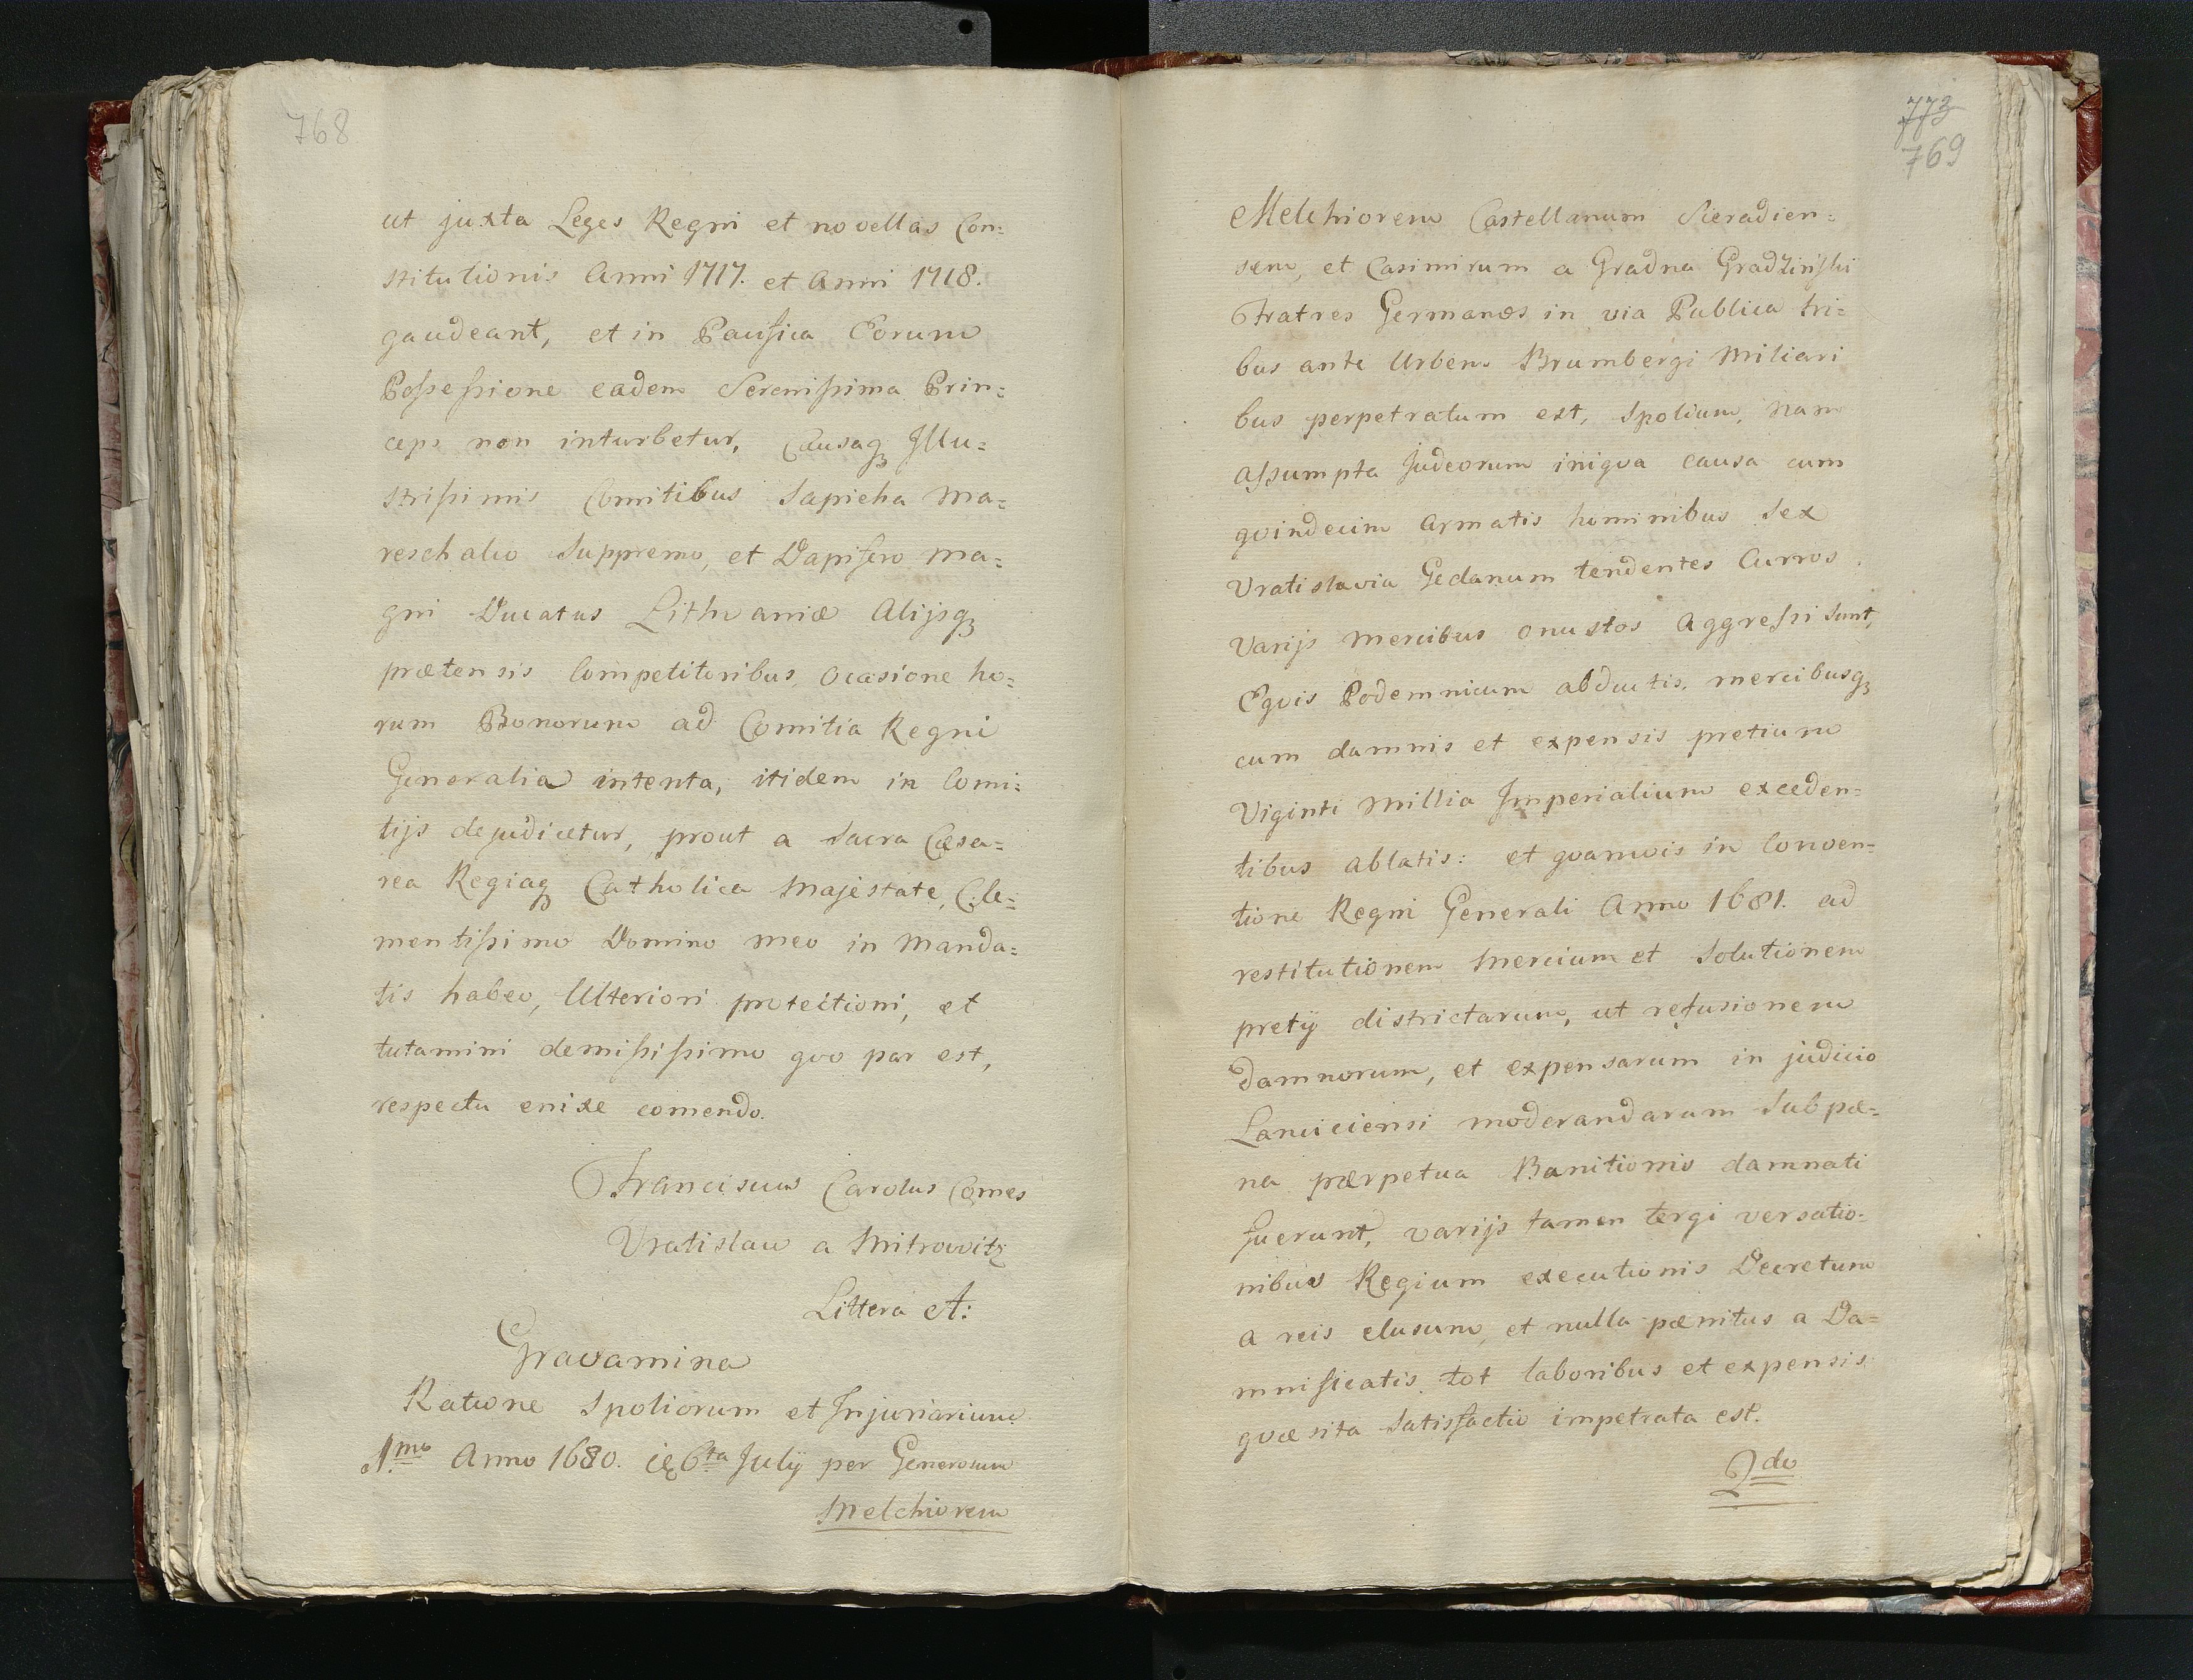 768
ut juxta Leges Regni et novellas Con=
stitutionis Anni 1717. et Anni 1718.
gaudeant, et in Pacifica Eorum
Possessione eadem Serenissima Prin=
ceps non inturbetur, Causaq₃ Illu=
strissimis Comitibus Sapieha Ma=
reschalco Suppremo, et Dapifero Ma=
gni Ducatus Lithvaniæ Alijsq₃
prætensis Competitoribus, Ocasione ho=
rum Bonorum ad Comitia Regni
Generalia intenta, itidem in Comi=
tijs dejudicetur, prout a Sacra Cæsa=
rea Regiaq₃ Catholica Majestate, Cle=
mentissimo Domino meo in Manda=
tis habeo, Ulteriori protectioni, et
tutamini demississimo quo par est,
respectu enixe comendo.
Franciscus Carolus Comes
Vratislaw a Mitrowitz
Littera A:
Gravamina
Ratione Spoliorum et Injuriarium
1.mo Anno 1680. 6ta July per Generosum
Melchiorem
773
769
Melchiorem Castellanum Sieradien=
sem, et Casimirum a Gradna Gradziński
Fratres Germanos in via Publica tri=
bus ante Urbem Brumbergi Miliari
bus perpetratum est, Spolium, Nam
Assumpta Judeorum iniqva causa cum
qvindecim Armatis hominibus Sex
Vratislavia Gedanum tendentes Curros
Varijs mercibus onustos Aggressi Sunt,
Eqvis Podemnicum abductis, mercibusq₃
cum damnis et expensis pretium
Viginti Millia Imperialium exceden=
tibus ablatis: et qvamvis in Conven=
tione Regni Generali Anno 1681. ad
restitutionem Mercium et Solutionem
pretij districtarum, ut refusionem
damnorum, et expensarum in judicio
Lanciciensi moderandarum Sub pæ=
na pærpetua Banitionis damnati
fuerunt, varijs tamen tergi versatio=
nibus Regium executionis Decretum
a reis elusum, et nulla pænitus a Da=
mnificatis tot laboribus et expensis
qvæsita Satisfactio impetrata est.
2do